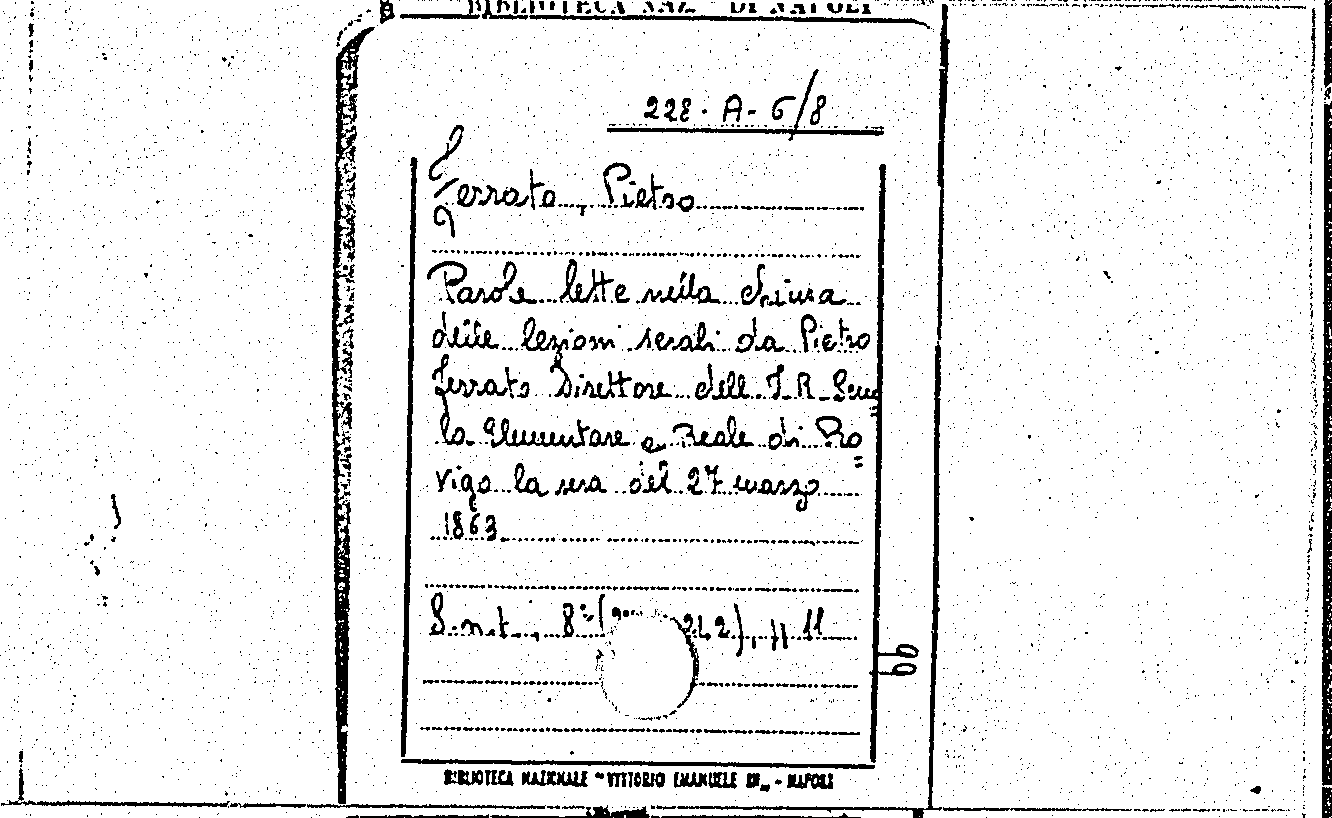 BIBLIOTECA NAZ. DI NAPOLI
228. A- 6/8
Ferrato, Pietro
Parole lette nella chiusa
delle lezioni serali da Pietro
Ferrato Direttore dell. I. R. Scuo
la Elementare e Reale di Ro
vigo la sera del 27 marzo
1863
S.n.t., 8°( 21,2), 11
BIBLIOTECA NAZIONALE "VITTORIO EMANUELE III„ - NAPOLI